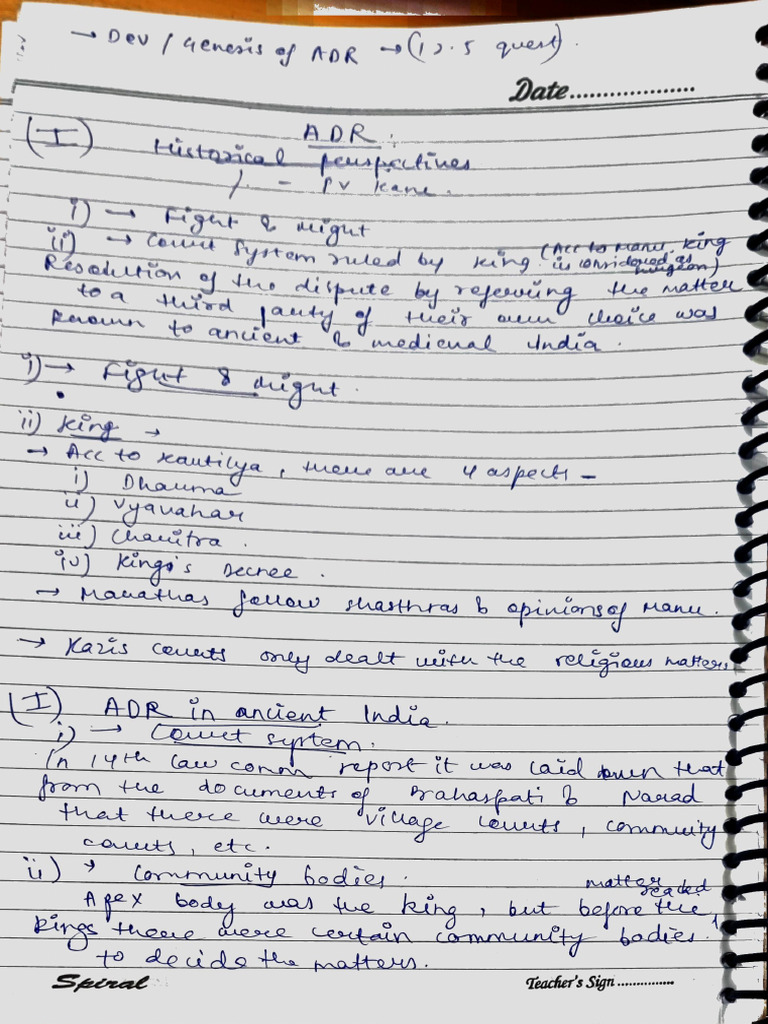 → Dev / Genesis of ADR → (12.5 quest).
Date...................
(I) ADR:
Historical perspectives
- PV Kane.
i) → Fight & Might
ii) → Court System ruled by King (Acc to Manu, King is considered as
Resolution of the dispute by referring the matter
to a third party of their own choice was
known to ancient & medieval India.
i) → Fight & Might.
ii) King →
→ Acc to Kautilya, there are 4 aspects -
i) Dharma
ii) Vyavahar
iii) Charitra.
iv) King's Decree.
→ Marathas follow shasthras & opinions of Manu.
→ Kazis courts only dealt with the religious matters.
(I) ADR in ancient India.
i) → Court system.
In 14th law comm report it was laid down that
from the documents of Brahaspati & Narad
that there were village courts, community
courts, etc.
ii) → Community bodies.
Apex body was the king, but before the matter reached
Kings there were certain community bodies
to decide the matters.
Spiral
Teacher's Sign ...............